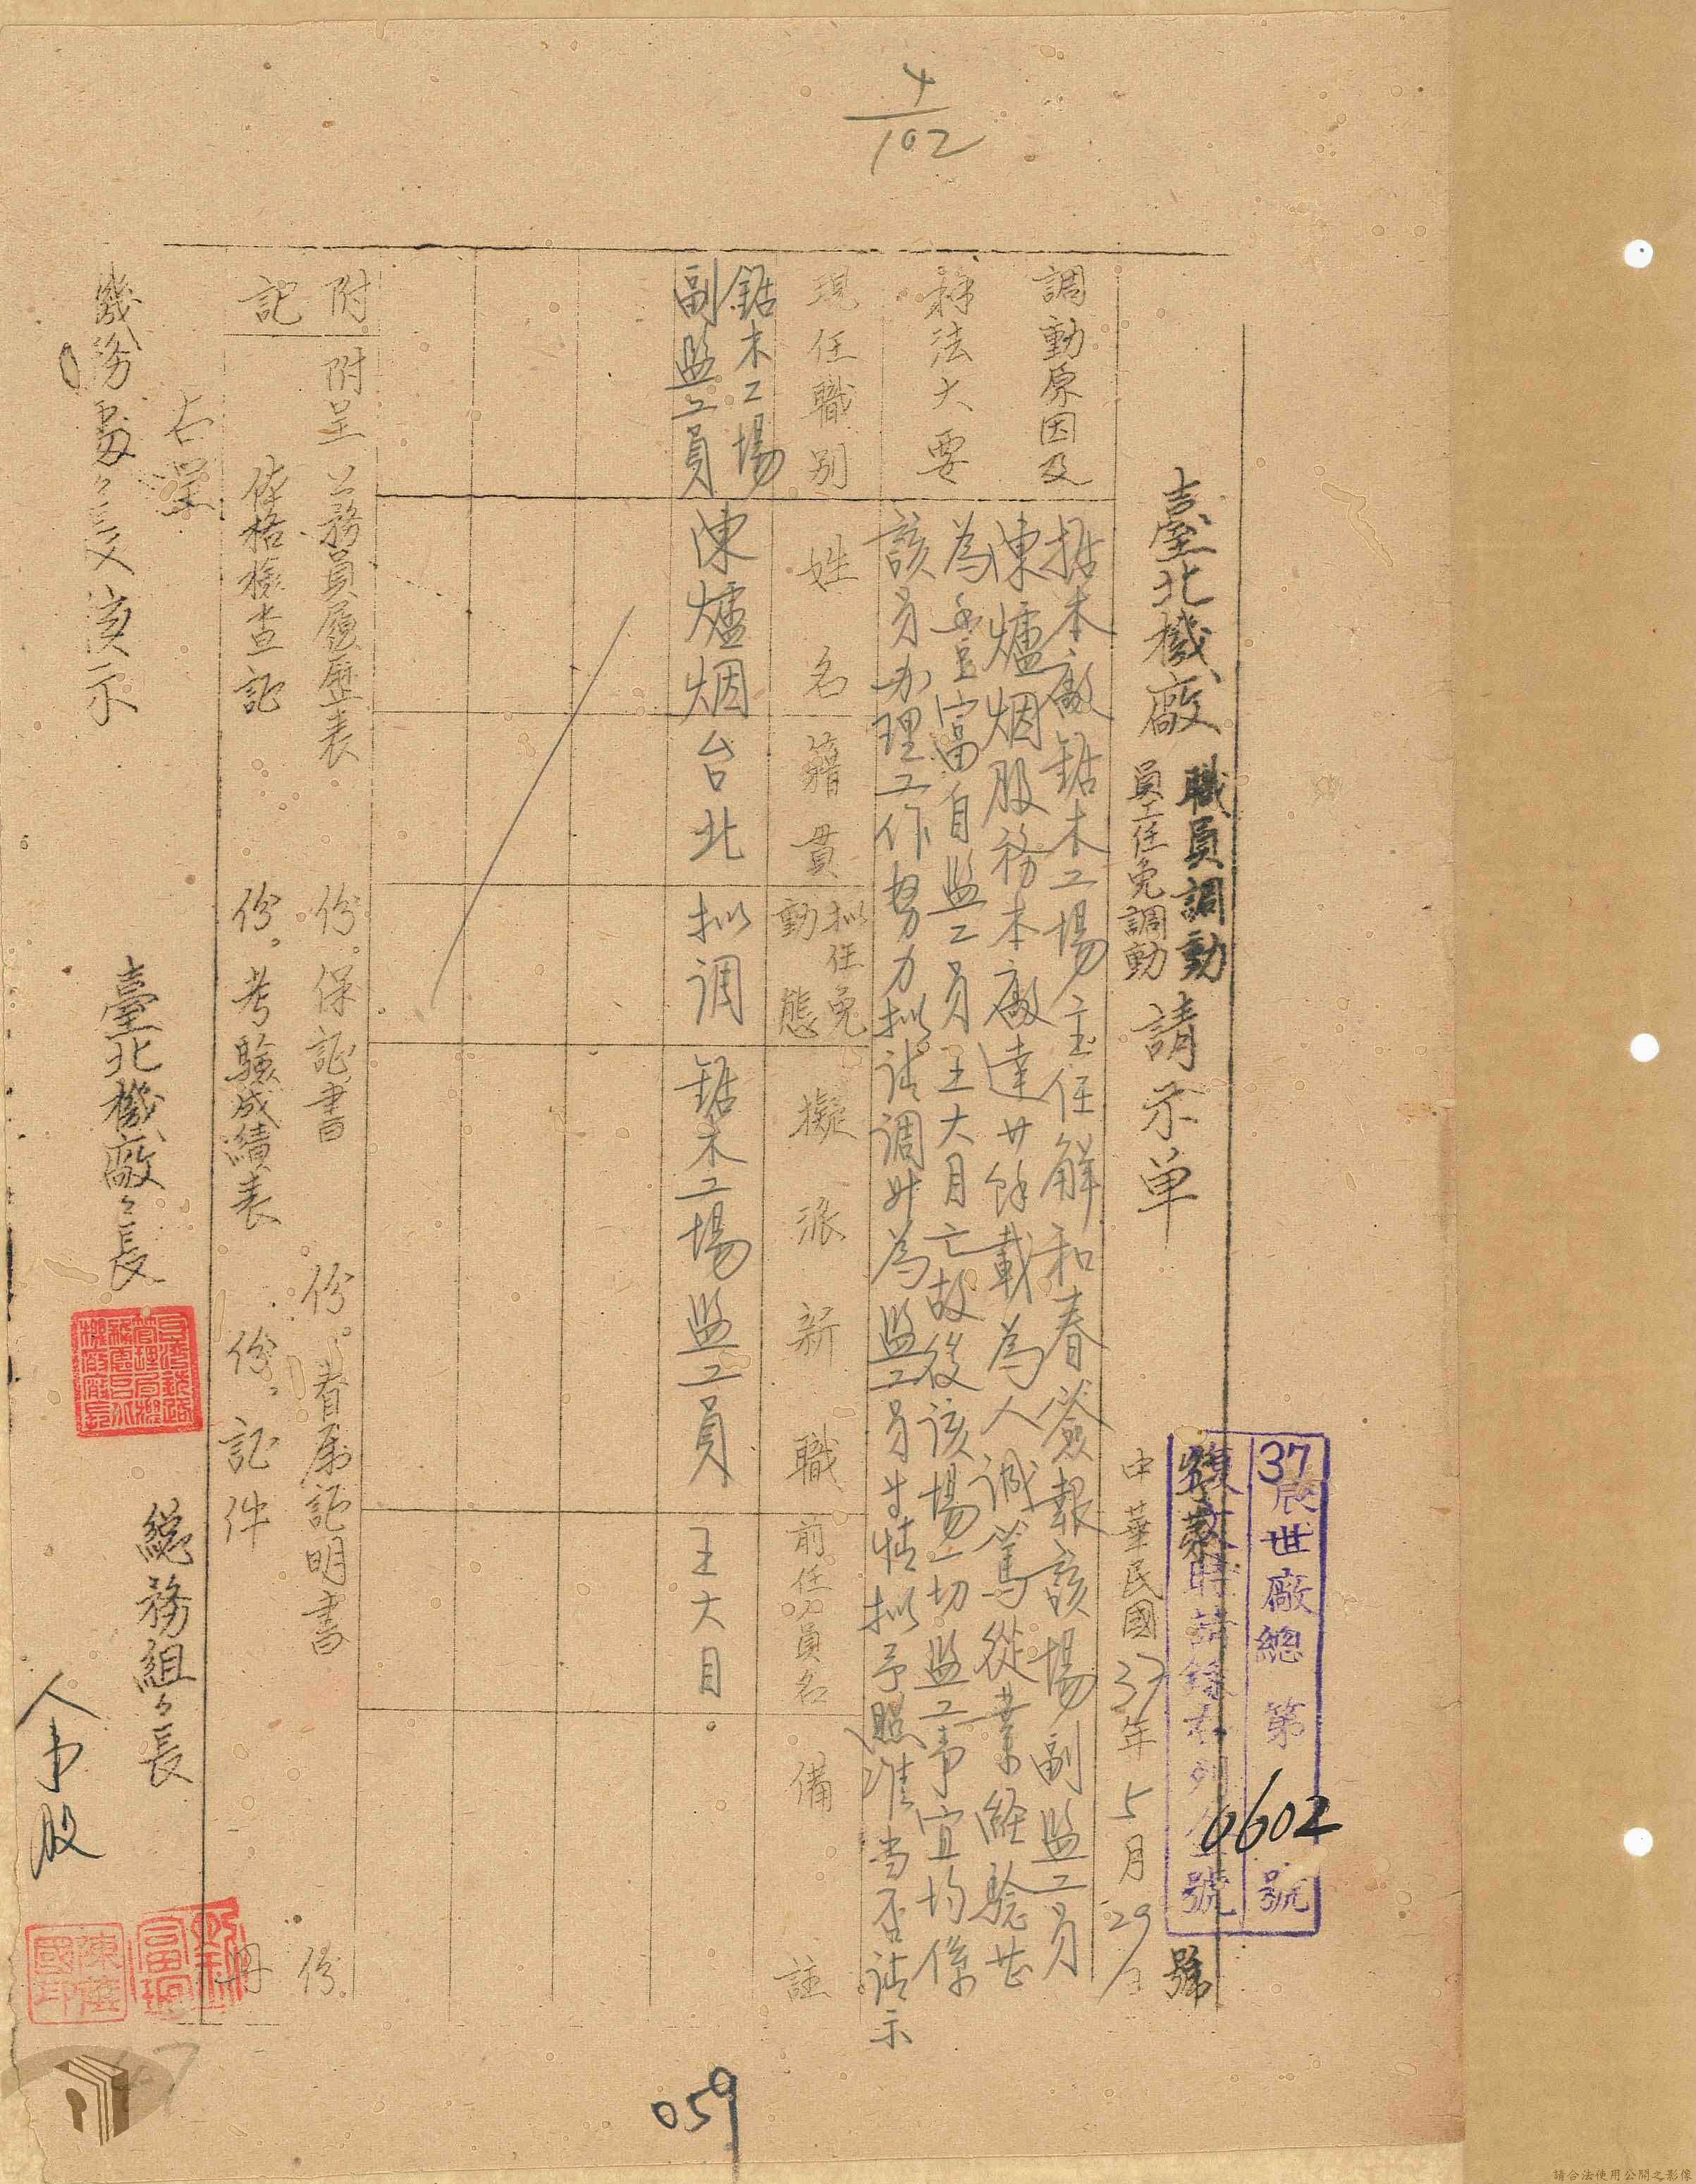 4/102
37辰世廠總 第0602號
復文時請錄右列全號
臺北機廠 職員調動 員工任免調動 請示单
號
中華民國37年5月29日
調動原因及
辦法大要
据木廠鋸木工場主任解和春簽報該場副監工員
陳爐烟服務本廠達廿餘載為人誠篤從業經驗甚
為豊富自監工員王大目亡故後该場一切監工事宜均係
該員办理工作努力拟请调升為監工員等情拟予照准当否请示
現任職別
姓名
籍貫
拟任免動態
擬派新職
前任員名
備註
鋸木工場副監工員
陳爐烟
台北
拟调
鋸木工場監工員
王大目。
附記
附呈 公務員履歷表 份。保証書 份。眷属証明書 份。
体格檢查記 份。考驗成績表 份。証件 冊
右呈
機務處々長 核示
臺北機廠々長
總務組々長
人事股
陳 國印
059
請合法使用公開之影像